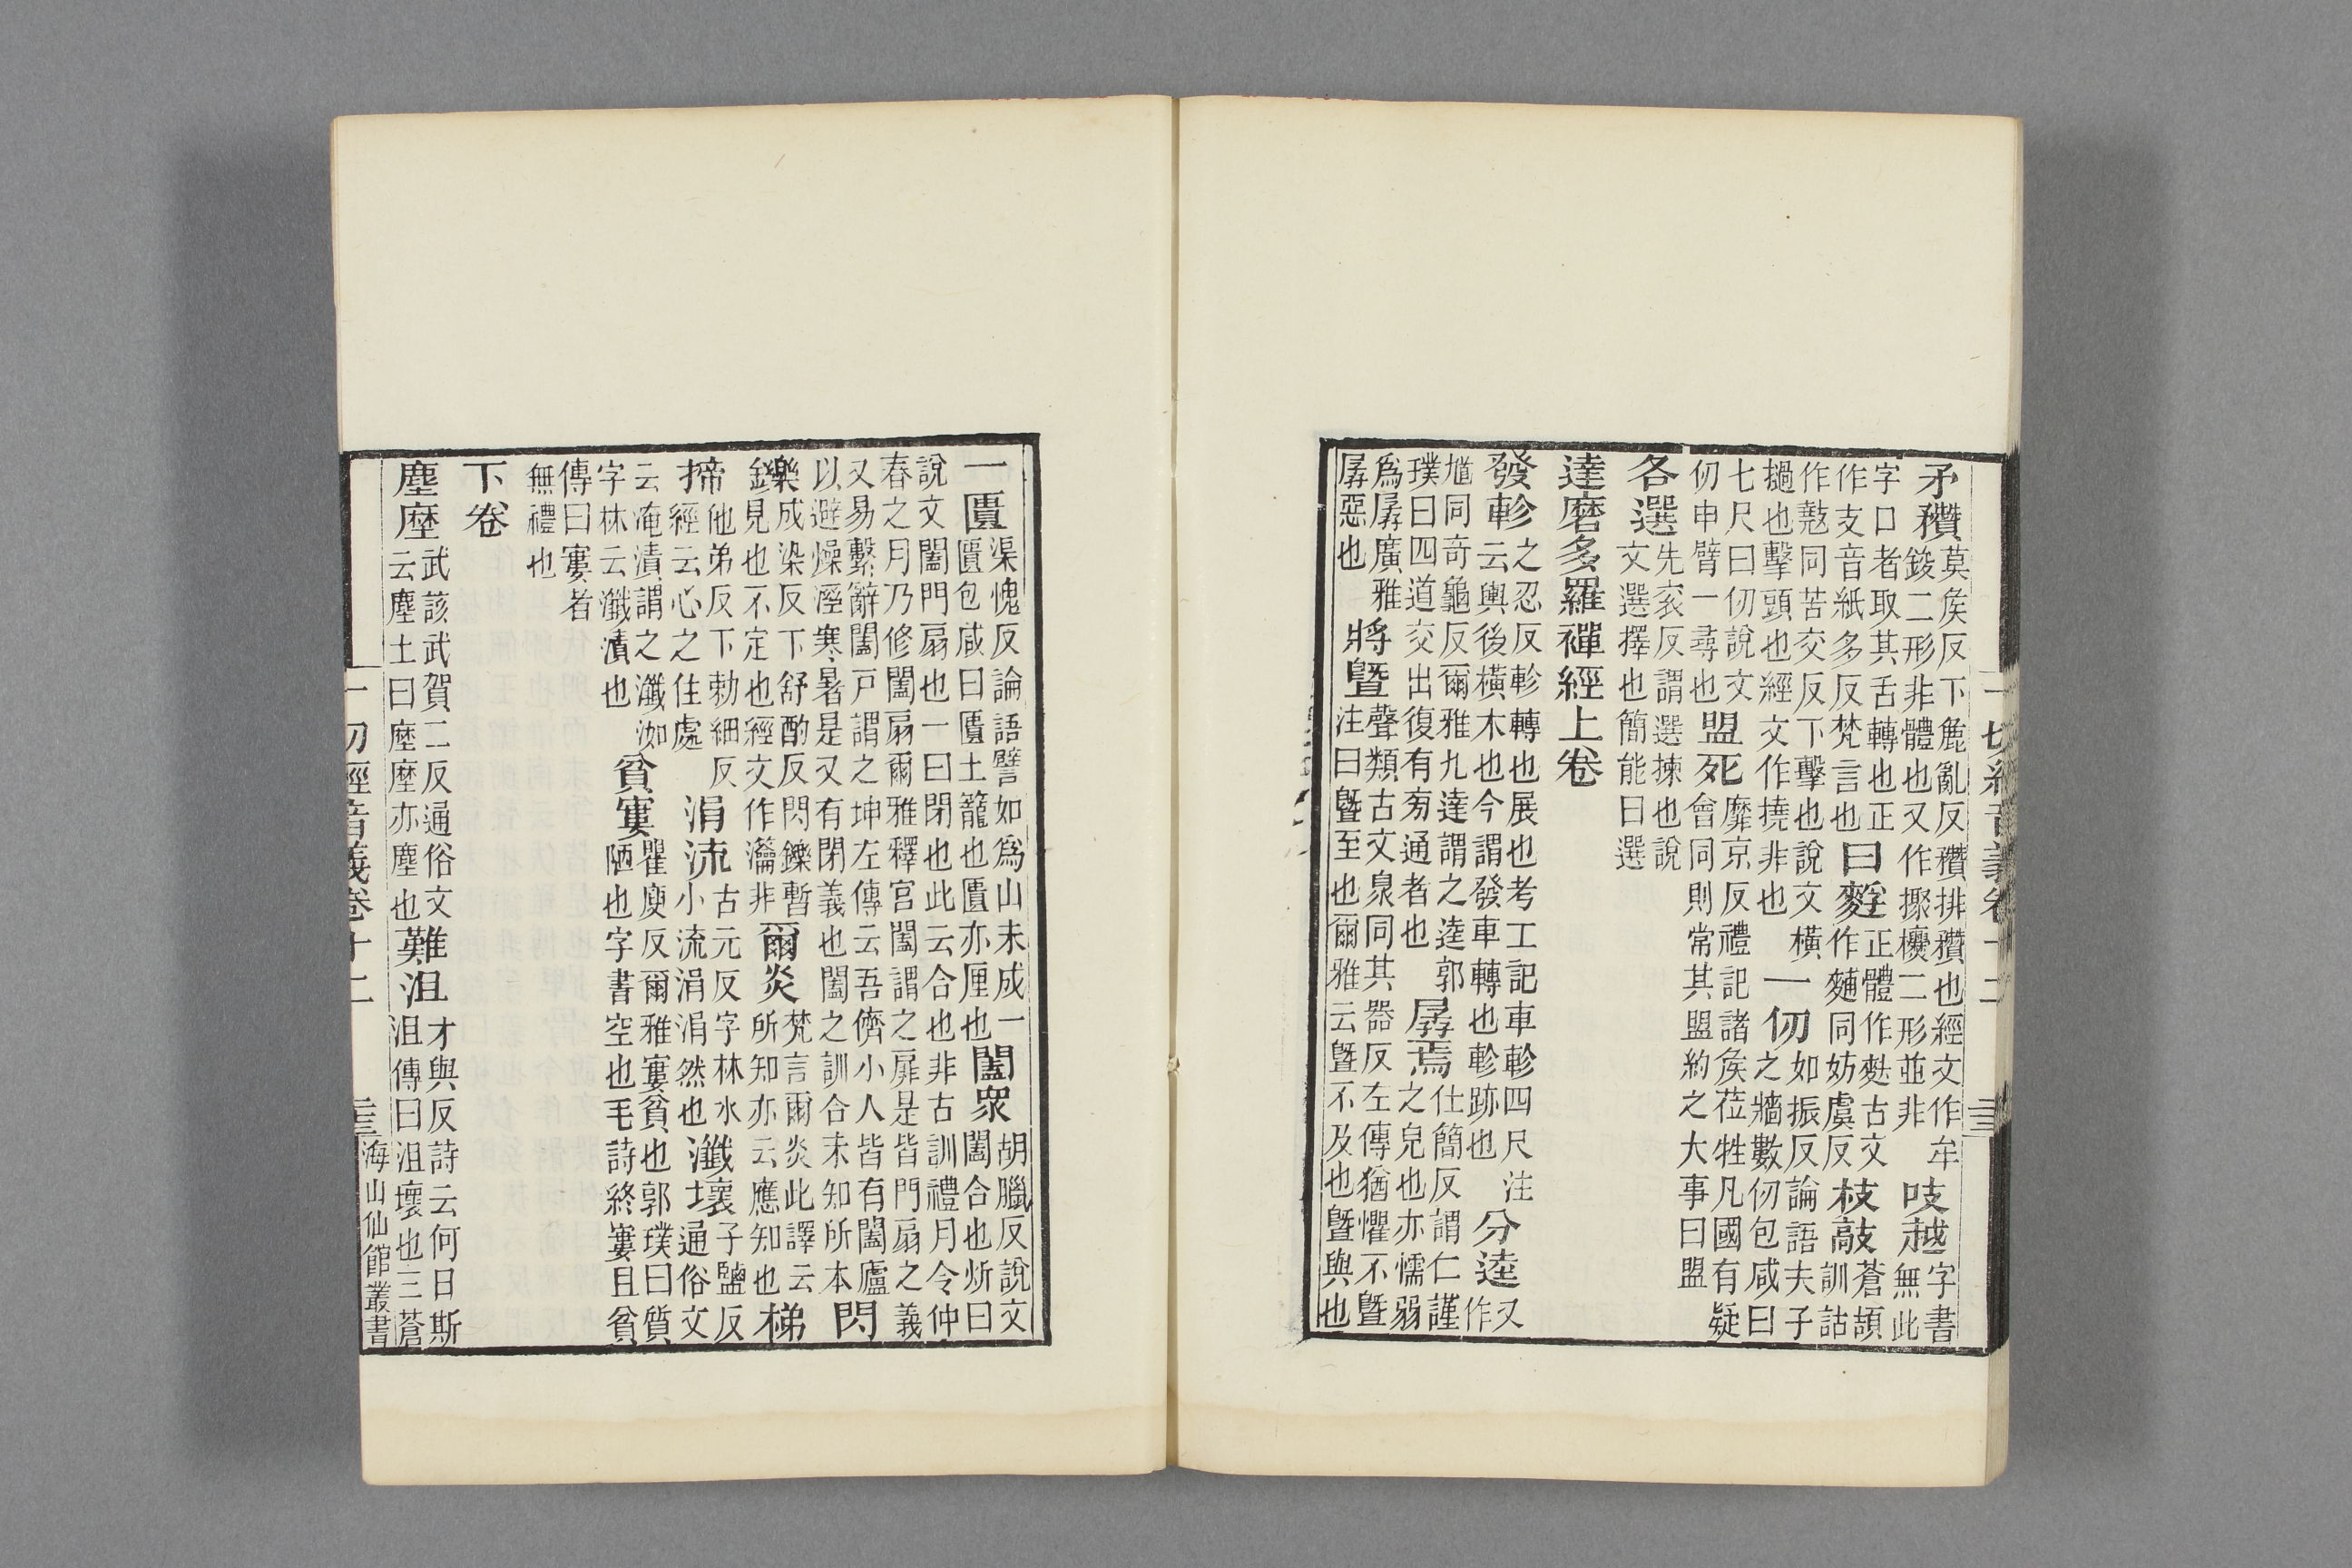 矛穳莫矦反下麁亂反穳排穳也經文作牟鋑二形非體也又作㩌欑二形並非吱越字書無此
字口者取其舌轉也正作支音紙多反梵言也曰正體作麩古文作同妨虞反枝敲蒼頡訓詁
作同苦交反下擊也說文橫撾也擊頭也經文作撓非也一仞如振反論語夫子之牆數仞包咸曰
七尺曰仞說文仞申臂一尋也盟死靡京反禮記諸矦莅牲凡國有疑會同則常其盟約之大事曰盟
各選先兖反謂選揀也說文選擇也簡能曰選
達磨多羅禪經上卷
發軫之忍反軫轉也展也考工記車軫四尺注云輿後橫木也今謂發車轉也軫跡也分逵又作
馗同奇龜反爾雅九達謂之逵郭璞曰四道交出復有㫄通者也孱焉仕簡反謂仁謹之皃也亦懦弱
爲孱廣雅孱惡也將曁聲類古文臮同其器反左傳猶懼不曁注曰曁至也爾雅云曁不及也曁與也
一切經音義卷十二
二十三
一匱渠愧反論語譬如爲山未成一匱包咸曰匱土籠也匱亦厘也闔衆胡臘反說文闔合也炘曰
說文闔門扇也一曰閉也此云合也非古訓禮月令仲春之月乃修闔扇爾雅釋宮闔謂之扉是皆門扇之義
又易繫辭闔戸謂之坤左傳云吾儕小人皆有闔廬以避燥溼寒暑是又有閉義也闔之訓合未知所本閃
鑠成染反下舒酌反閃鑠暫見也不定也經文作非爾炎梵言爾炎此譯云所知亦云應知也梯
揥他弟反下勅細反經云心之住處涓流古元反字林水小流涓涓然也瀸壞子鹽反通俗文
云淹漬謂之瀸洳字林云瀸漬也貧寠瞿庾反爾雅寠貧也郭璞曰質陋也字書空也毛詩終寠且貧
傳曰寠者無禮也
下卷
塵𡋯武該武賀二反通俗文云塵土曰𡋯𡋯亦塵也難沮才與反詩云何日斯沮傳曰沮壞也三蒼
一切經音義卷十二
二十三
海山仙館叢書